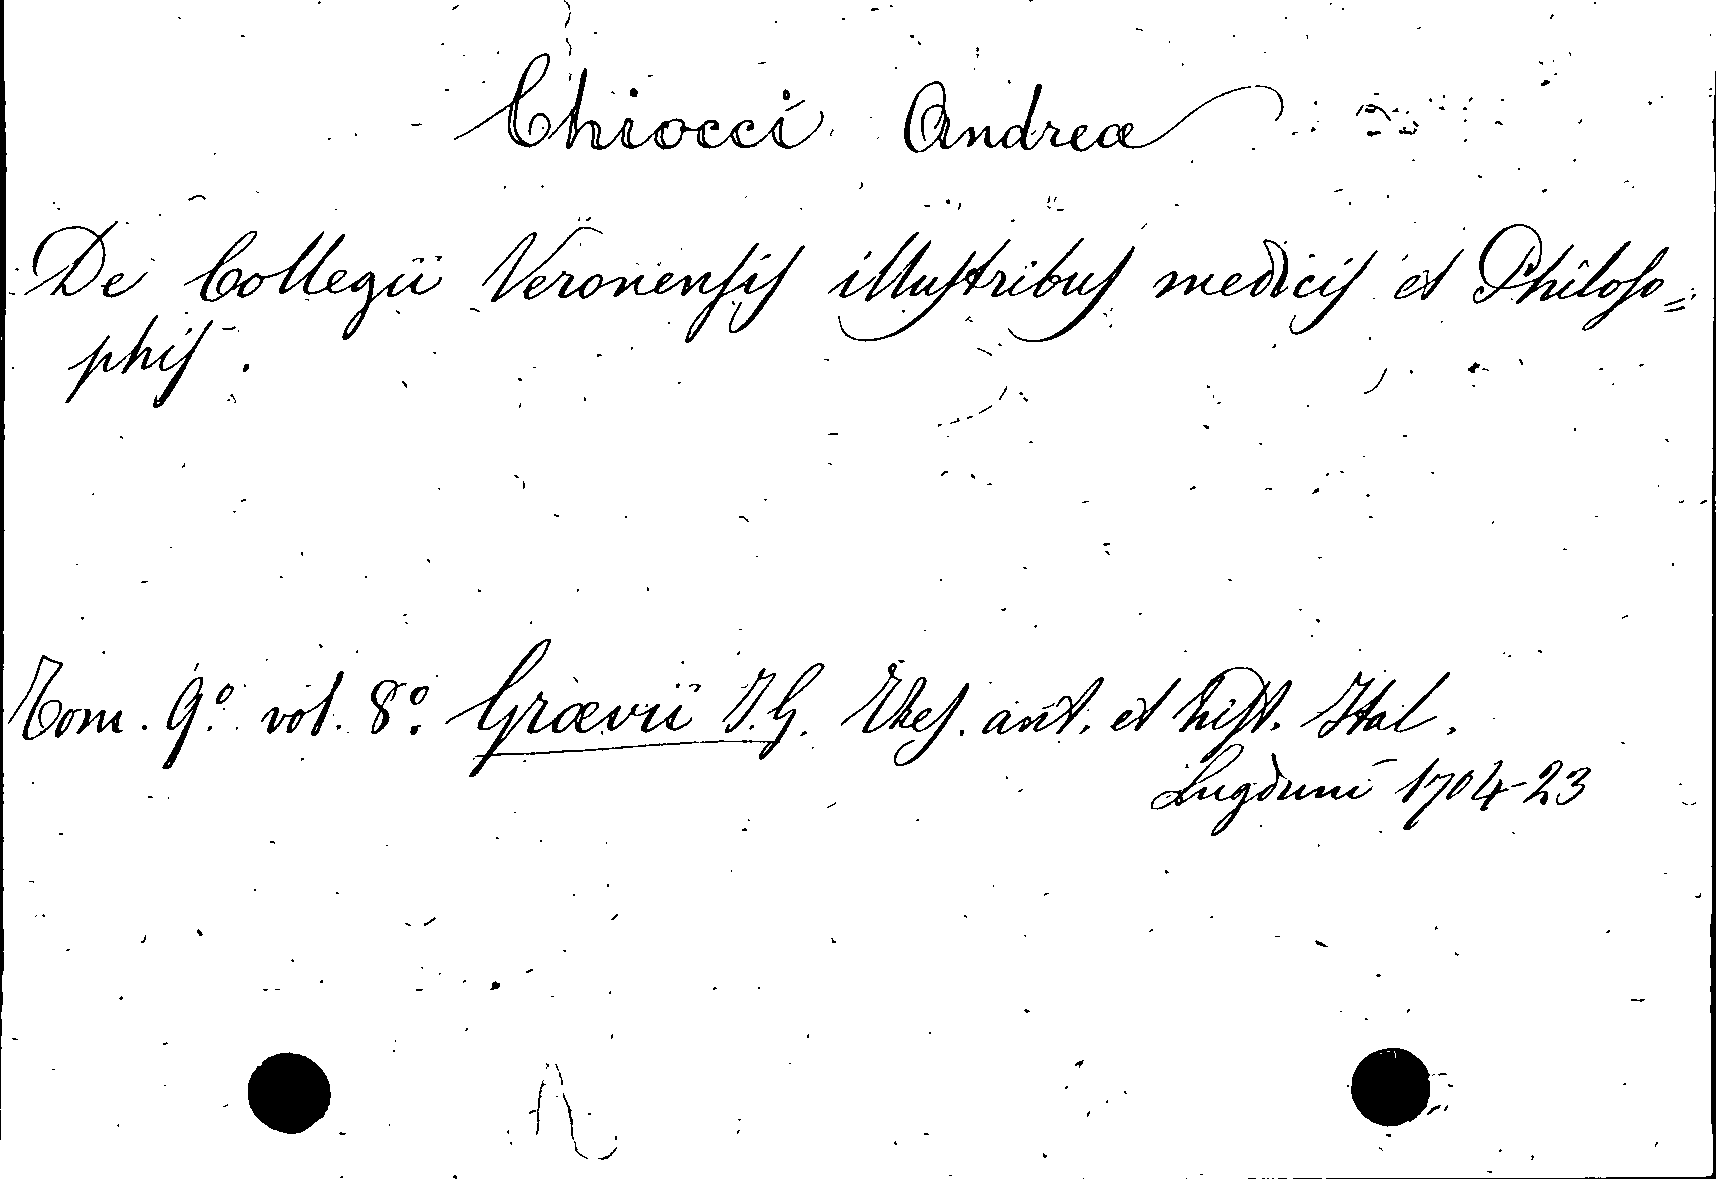 Chiocci Andreæ
De Collegii Veronensis illustribus medicis et Philoso=
phis.
Tom. 9º vol. 8º. Grævii J. G. Thes. ant. et hist. Ital.
Lugduni 1704-23